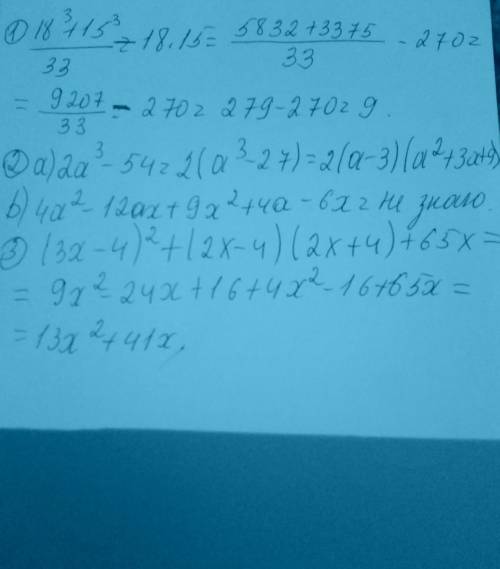 ① 18³+15³/33 - 18.15 = 5832+3375/33 - 270 =
= 9207/33 - 270 = 279-270 = 9.
② a) 2a³ - 54 = 2(a³-27) = 2(a-3)(a²+3a+9)
b) 4a² - 12ax + 9x² + 4a - 6x = не знаю.
③ (3x-4)² + (2x-4)(2x+4) + 65x =
= 9x² - 24x + 16 + 4x² - 16 + 65x =
= 13x² + 41x,